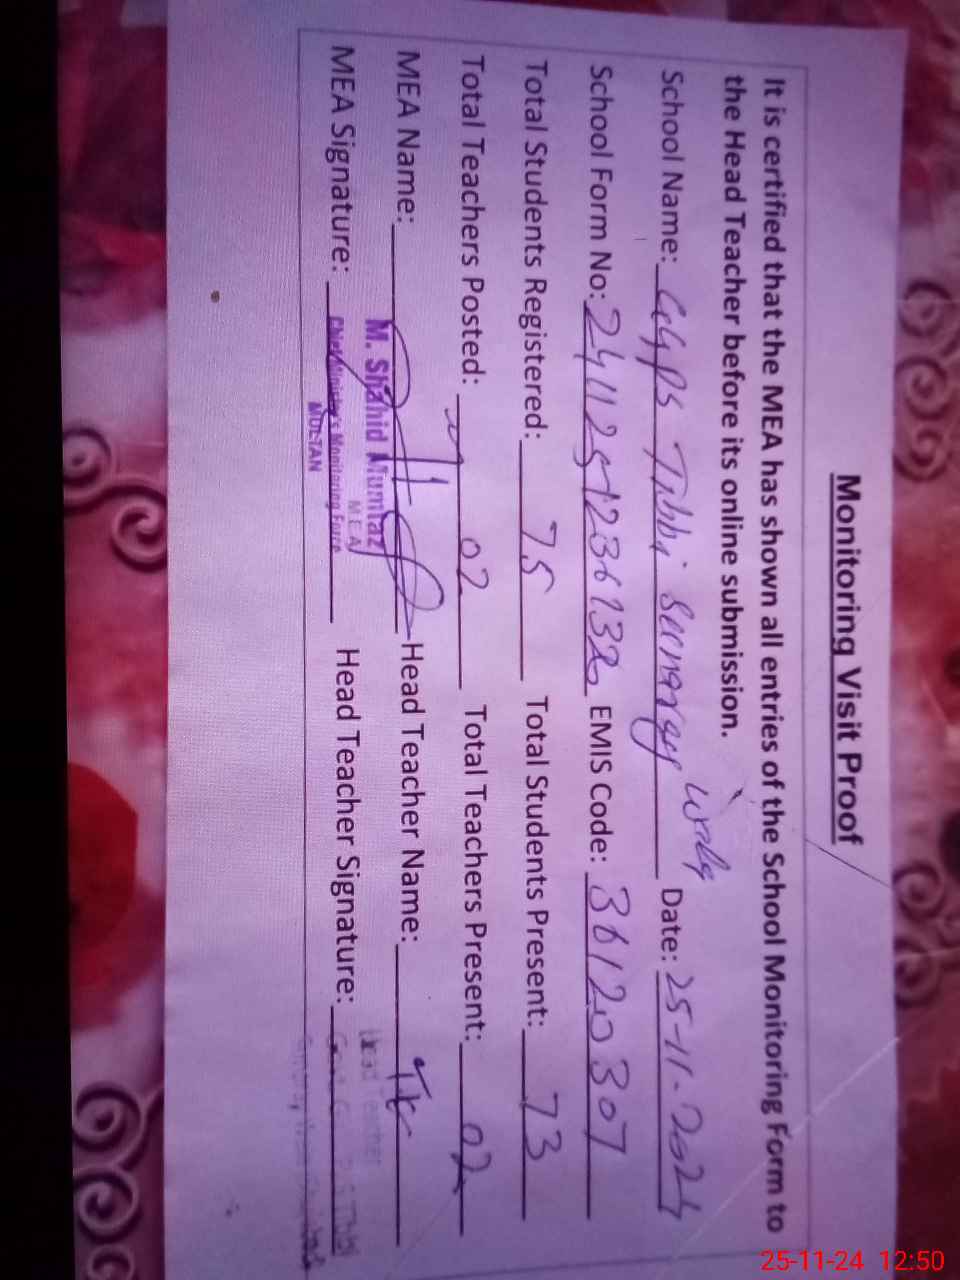 Monitoring Visit Proof
It is certified that the MEA has shown all entries of the School Monitoring Form to
the Head Teacher before its online submission.
School Name: GGPS Tibbi Date: 25-11-2024
School Form No: EMIS Code: 36120307
Total Students Registered: 75 Total Students Present: 73
Total Teachers Posted: 02 Total Teachers Present: 02
MEA Name: Head Teacher Name:
M. Shahid Mumtaz
M.E.A
MEA Signature: Head Teacher Signature:
Chief Minister's Monitoring Force
MULTAN
Head Teacher
25-11-24 12:50